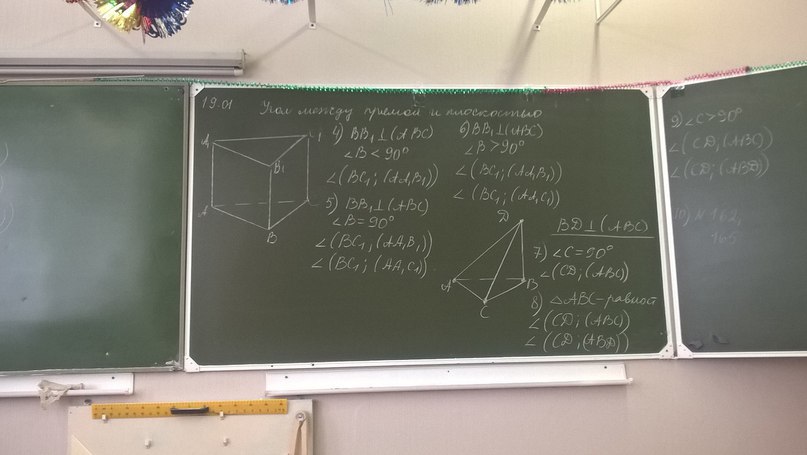 19.01
Угол между прямой и плоскостью
A₁
C₁
B₁
A
B
4) BB₁⊥(ABC)
∠B<90°
∠(BC₁; (AA₁B₁))
5) BB₁⊥(ABC)
∠B=90°
∠(BC₁; (AA₁B₁)
∠(BC₁; (AA₁C₁)
6) BB₁⊥(ABC)
∠B>90°
∠(BC₁; (AA₁B₁))
∠(BC₁; (AA₁C₁)
D
A
B
C
BD⊥(ABC)
7) ∠C=90°
∠(CD; (ABC)
8) △ABC-равност
∠(CD; (ABC)
∠(CD; (ABD))
9) ∠C>90°
∠(CD; (ABC))
∠(CD; (ABD))
10) N 162,
165